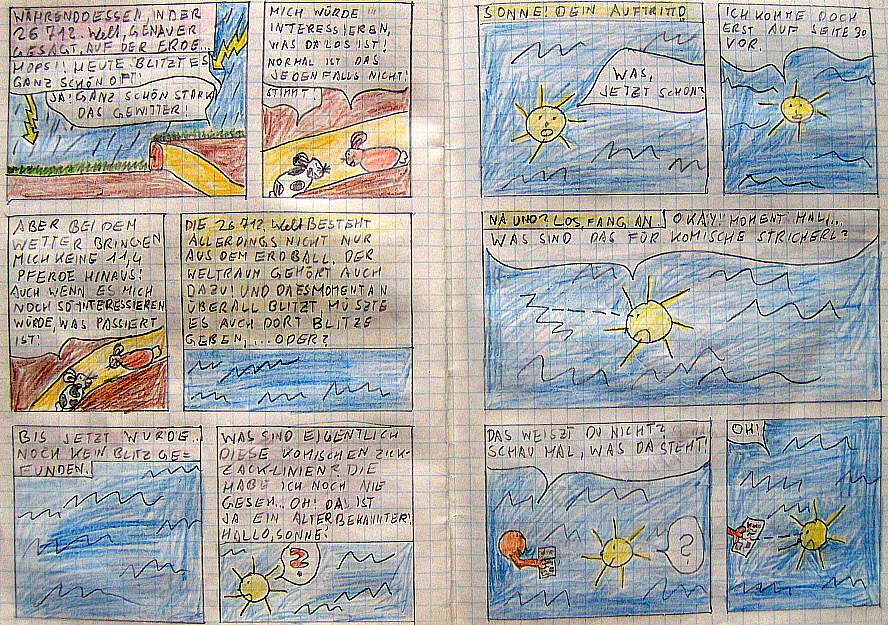 WÄHRENDDESSEN, IN DER
26 712. Welt, GENAUER
GESAGT, AUF DER ERDE...
HOPS!! HEUTE BLITZT ES
GANZ SCHÖN OFT!
JA! GANZ SCHÖN STARK
DAS GEWITTER!
MICH WÜRDE
INTERESSIEREN,
WAS DA LOS IST!
NORMAL IST DAS
JEDENFALLS NICHT!
STIMMT!
ABER BEI DEM
WETTER BRINGEN
MICH KEINE 11,4
PFERDE HINAUS!
AUCH WENN ES MICH
NOCH SO INTERESSIEREN
WÜRDE, WAS PASSIERT
IST!
DIE 26 712. Welt BESTEHT
ALLERDINGS NICHT NUR
AUS DEM ERDBALL. DER
WELTRAUM GEHÖRT AUCH
DAZU! UND DA ES MOMENTAN
ÜBERALL BLITZT, MÜSZTE
ES AUCH DORT BLITZE
GEBEN, ... ODER?
BIS JETZT WURDE
NOCH KEIN BLITZ GE=
FUNDEN.
WAS SIND EIGENTLICH
DIESE KOMISCHEN ZICK-
ZACK-LINIEN? DIE
HABE ICH NOCH NIE
GESEH... OH! DA IST
JA EIN ALTER BEKANNTER!
HALLO, SONNE!
?
SONNE! DEIN AUFTRITT!
WAS,
JETZT SCHON?
ICH KOMME DOCH
ERST AUF SEITE 30
VOR.
NA UND? LOS, FANG AN
OKAY! MOMENT MAL...
WAS SIND DAS FÜR KOMISCHE STRICHERL?
DAS WEISZT DU NICHT?
SCHAU MAL, WAS DA STEHT!
?
OH!